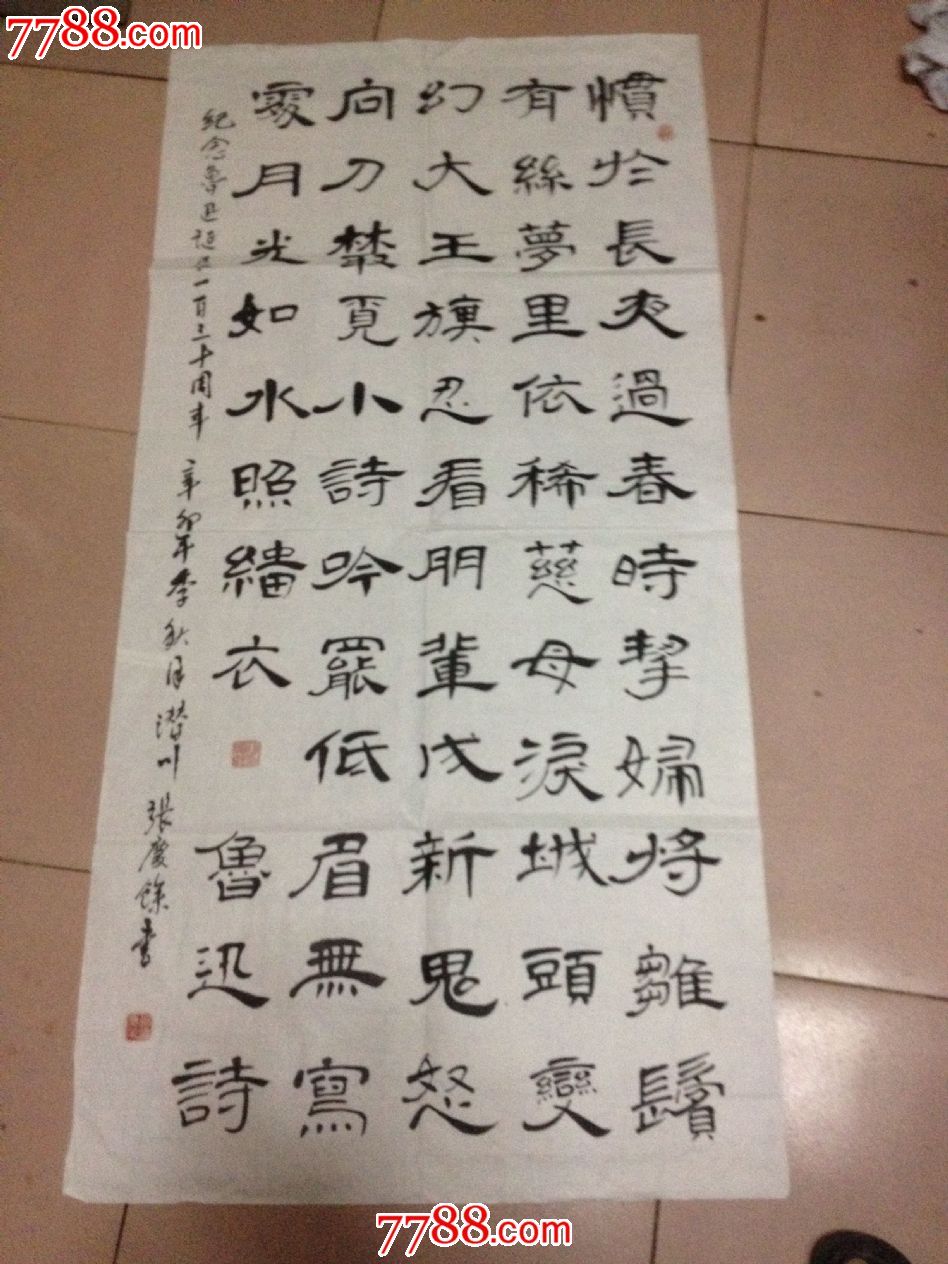 7788.com
慣於長夜過春時挈婦將雛鬢
有絲夢里依稀慈母淚城頭變
幻大王旗忍看朋輩成新鬼怒
向刀叢覓小詩吟罷低眉無寫
處月光如水照緇衣 魯迅詩
紀念魯迅誕辰一百三十周年 辛卯年季秋月 潜川 張慶餘書
7788.com